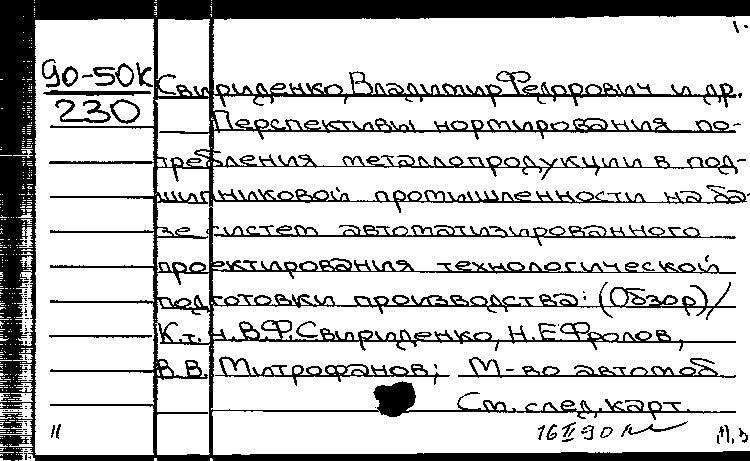 1.
90-50К Свириденко, Владимир Федорович и др.
230 Перспективы нормирования по-
требления металлопродукции в под-
шипниковой промышленности на ба-
зе систем автоматизированного
проектирования технологической
подготовки производства: (Обзор)/
К.т.н.В.Ф.Свириденко, Н.Е.Фролов,
В.В.Митрофанов; М-во автомоб.
См. след. карт.
11 16 II 90